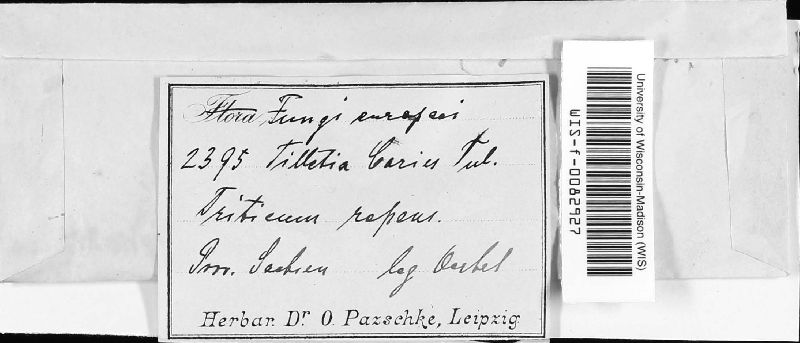 Flora Fungi europaei
2395 Tilletia Caries Tul.
Triticum repens.
Prov. Sachsen leg Oertel
Herbar. Dr. O. Pazschke, Leipzig
University of Wisconsin-Madison (WIS)
WIS-f-0082927